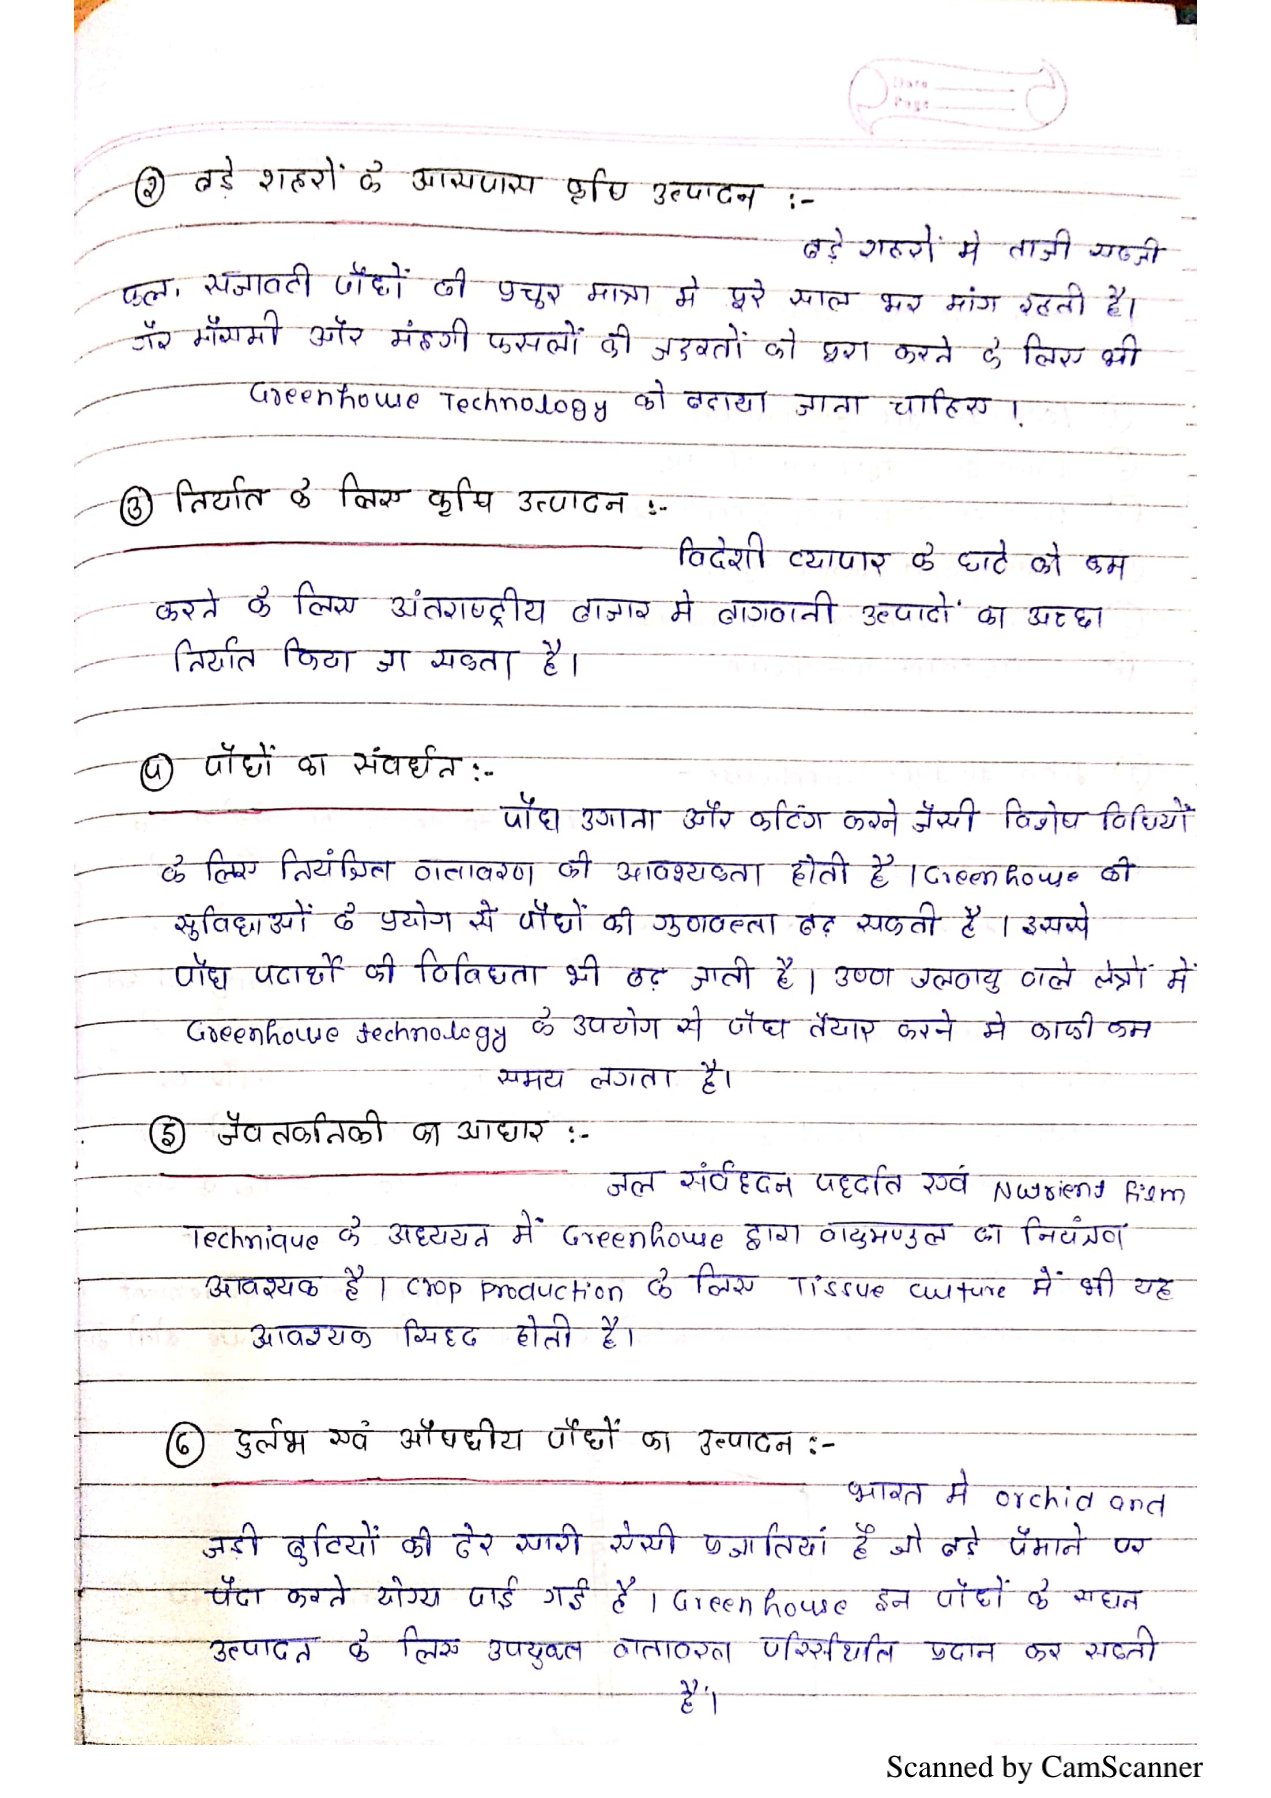 Date
Page
② बड़े शहरों के आसपास कृषि उत्पादन :-
बड़े शहरों मे ताजी सब्जी
फल, सजावटी पौधों की प्रचुर मात्रा मे पूरे साल भर मांग रहती है।
गैर मौसमी और मंहगी फसलों की जरूरतों को पूरा करने के लिए भी
Greenhouse Technology को बढाया जाना चाहिए।
③ निर्यात के लिए कृषि उत्पादन :-
विदेशी व्यापार के घाटे को कम
करने के लिए अंतराष्ट्रीय बाजार मे बागवानी उत्पादों का अच्छा
निर्यात किया जा सकता है।
④ पौधों का संवर्धन :-
पौध उगाना और कटिंग करने जैसी विशेष विधियों
के लिए नियंत्रित वातावरण की आवश्यकता होती है। Greenhouse की
सुविधाओं के प्रयोग से पौधों की गुणवत्ता बढ़ सकती है। इससे
पौध पदार्थों की विविधता भी बढ़ जाती है। उष्ण जलवायु वाले क्षेत्रों में
Greenhouse technology के उपयोग से पौध तैयार करने मे काफी कम
समय लगता है।
⑤ जैवतकनिकी का आधार :-
जल संर्वद्दन पद्दति एवं Nutrient film
Technique के अध्ययन में Greenhouse द्वारा वायुमण्डल का नियंत्रण
आवश्यक है। Crop production के लिए Tissue culture में भी यह
आवश्यक सिद्द होती है।
⑥ दुर्लभ एवं औषधीय पौधों का उत्पादन :-
भारत मे orchid and
जड़ी बुटियों की ढेर सारी ऐसी प्रजातियां है जो बड़े पैमाने पर
पैदा करने योग्य पाई गई है। Greenhouse इन पौधों के सघन
उत्पादन के लिए उपयुक्त वातावरण परिस्थिति प्रदान कर सकती
हैं।
Scanned by CamScanner